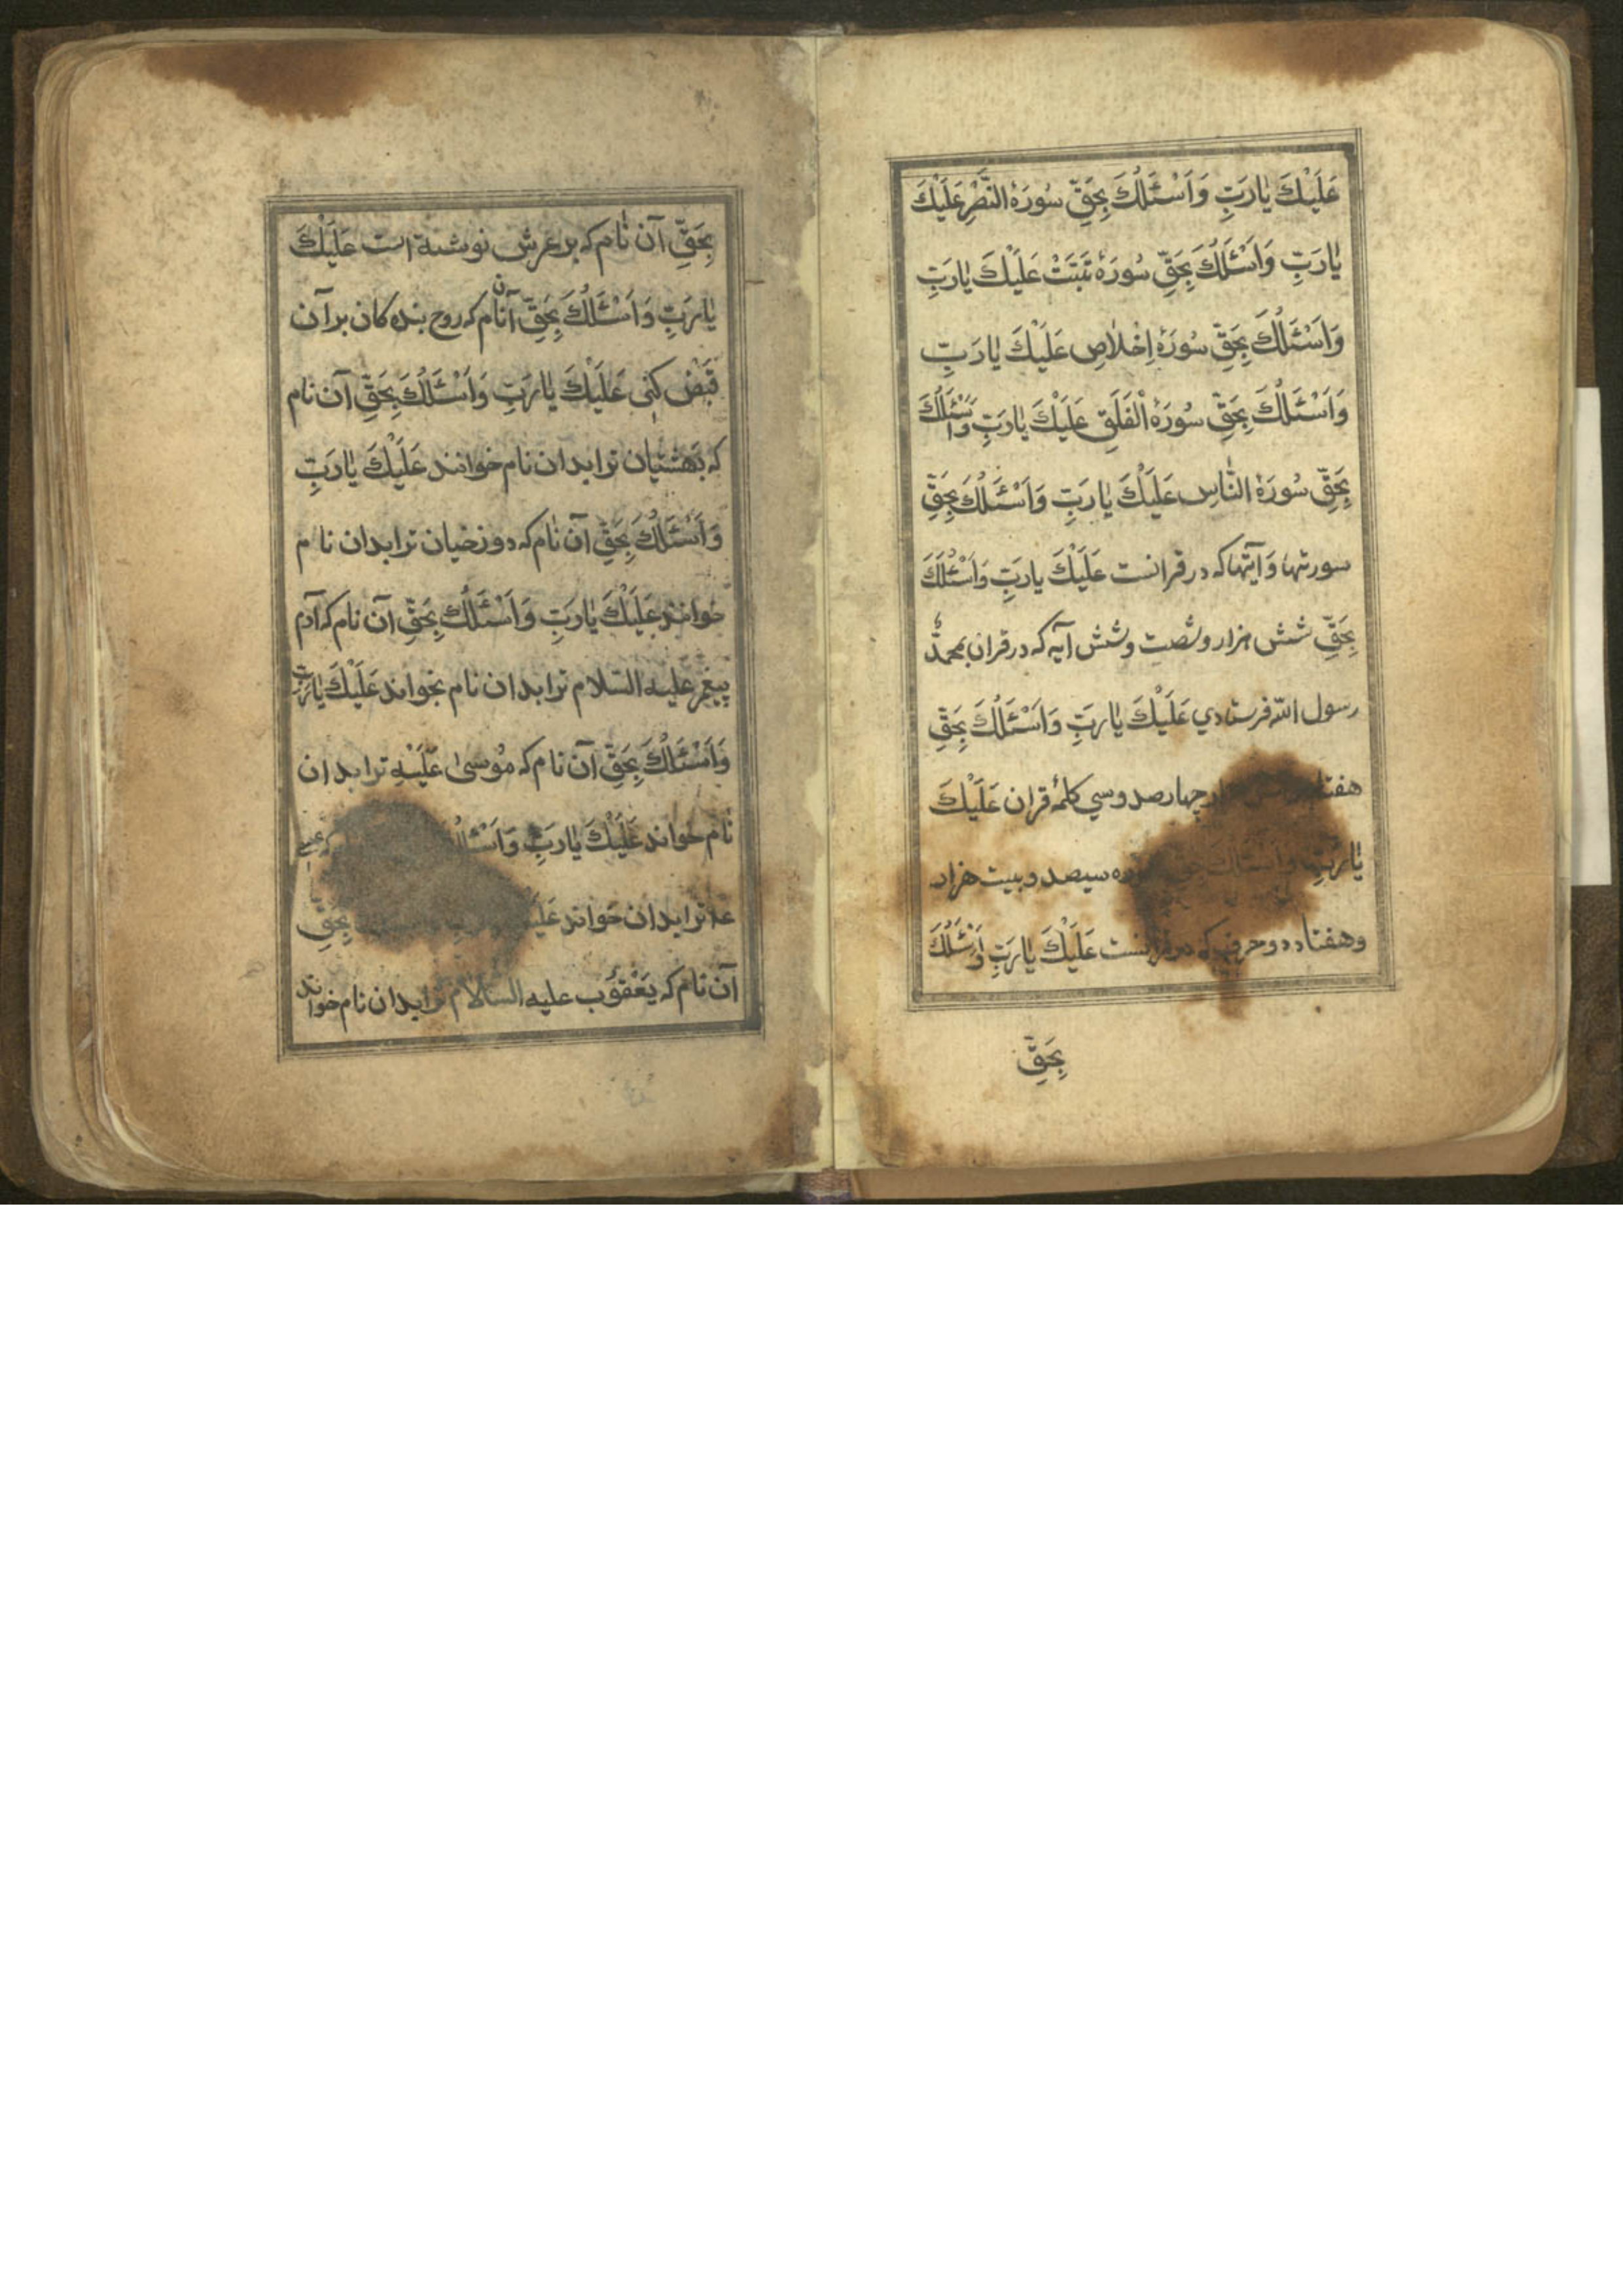 عَلَيْكَ يٰارَبِّ وَاَسْئَلُكَ بِحَقِّ سُورَهٔ النَّصْرِ عَلَيْكَ
يٰارَبِّ وَاَسْئَلُكَ بِحَقِّ سُورَهٔ تَبَّتْ عَلَيْكَ يٰارَبِّ
وَاَسْئَلُكَ بِحَقِّ سُورَهٔ اِخْلاٰصِ عَلَيْكَ يٰارَبِّ
وَاَسْئَلُكَ بِحَقِّ سُورَهٔ الْفَلَقِ عَلَيْكَ يٰارَبِّ وَاَسْئَلُكَ
بِحَقِّ سُورَهٔ النّٰاسِ عَلَيْكَ يٰارَبِّ وَاَسْئَلُكَ بِحَقِّ
سورتها وَآيتها كه در قرانست عَلَيْكَ يارَبِّ وَاَسْئَلُكَ
بِحَقِّ شش هزار وشصت وشش آيه كه در قران بمحمدّ
رسول الله فرستادي عَلَيْكَ يٰارَبِّ وَاَسْئَلُكَ بِحَقِّ
چهارصد وسي كلمهٔ قران عَلَيْكَ
يٰارَبِّ وَاَسْئَلُكَ سيصد وبيست هزار
وهفتاد دو حرفي كه در قرانست عَلَيْكَ يٰارَبِّ وَاَسْئَلُكَ
بِحَقِّ
بِحَقِّ آن نٰام كه بر عرش نوشته است عَلَيْكَ
يٰارَبِّ وَاَسْئَلُكَ بِحَقِّ آن نام كه روح بنده كان بر آن
قَبْض كنى عَلَيْكَ يٰارَبِّ وَاَسْئَلُكَ بِحَقِّ آن نام
كه بَهشتيان ترا بدان نام خوانند عَلَيْكَ يٰارَبِّ
وَاَسْئَلُكَ بِحَقِّ آن نٰام كه دوزخيان ترا بدان نام
خوانند عَلَيْكَ يٰارَبِّ وَاَسْئَلُكَ بِحَقِّ آن نام كه آدم
پيغمبر عليه السّلام ترا بدان نام بخواند عَلَيْكَ يٰارَبِّ
وَاَسْئَلُكَ بِحَقِّ آن نام كه مُوسىٰ عَلَيْهِ ترا بدان
نام خواند عَلَيْكَ يٰارَبِّ كه عيسى
ترا بدان خواند بِحَقِّ
آن نام كه يَعْقُوب عليه السّلام ترا بدان نام خواند